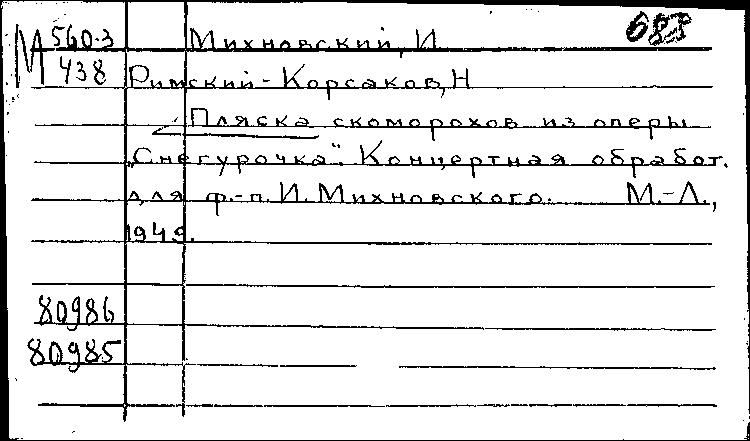 М 560-3 Михновский, И
438 Римский-Корсаков, Н
Пляска скоморохов из оперы
„Снегурочка". Концертная обработ.
для ф.-п. И. Михновского. М.-Л.,
1949.
80986
80985